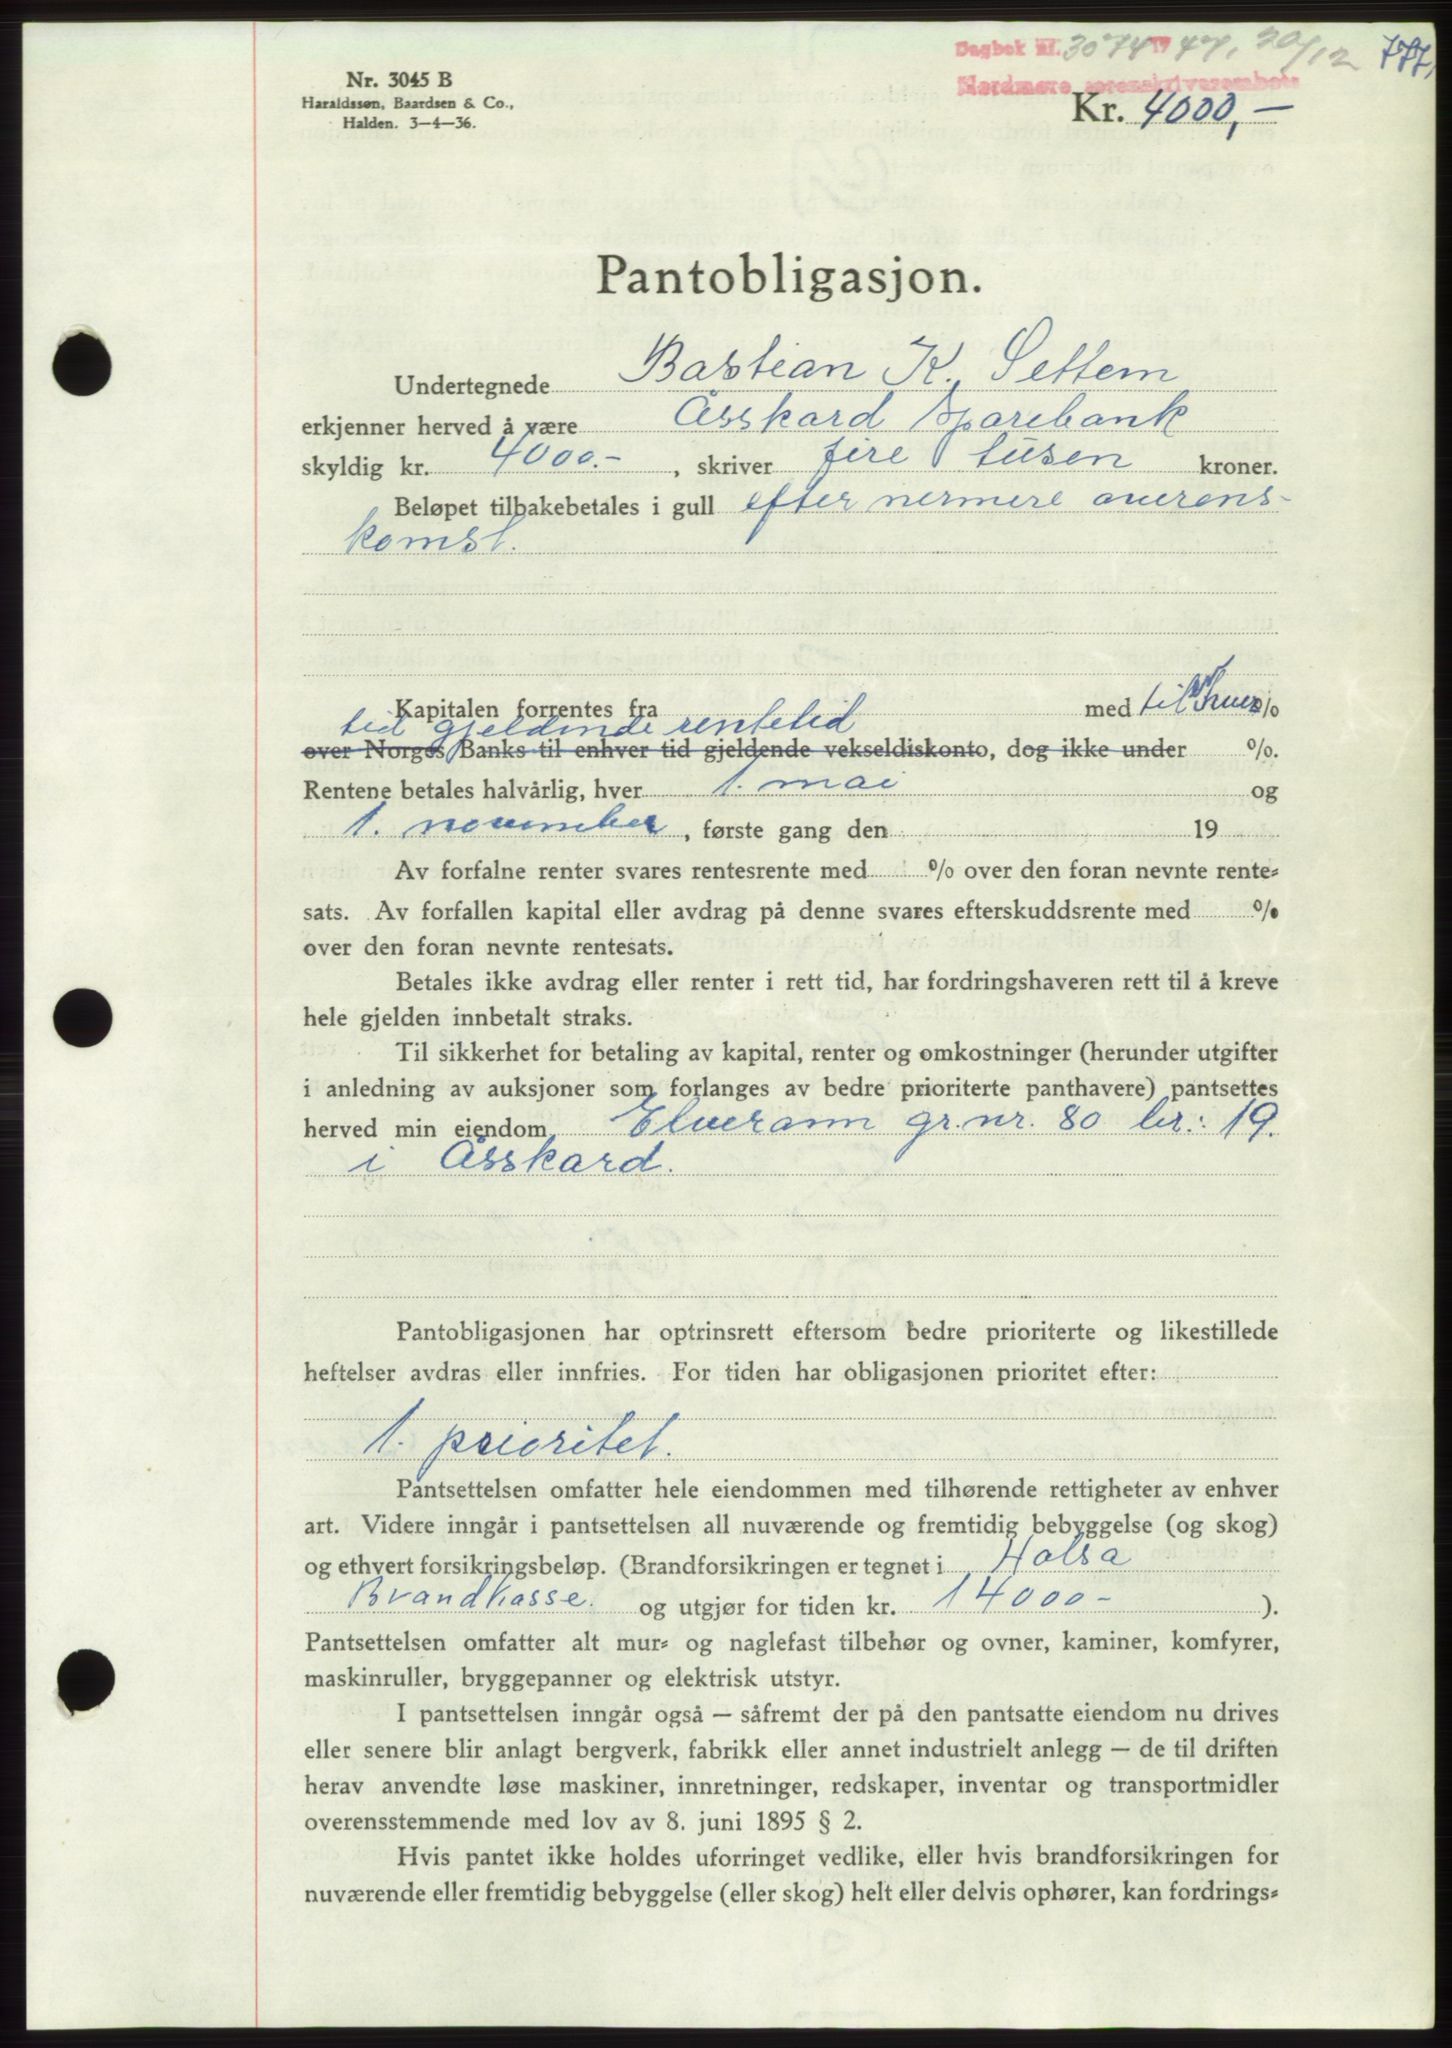 Dagbok nr. 3074 1947, 20/12 777,
Nordmøre sorenskriverembete
Nr. 3045 B
Haraldssøn, Baardsen & Co.,
Halden. 3—4—36.
Kr. 4000,-
Pantobligasjon.
Undertegnede Bastian K. Settem
erkjenner herved å være Åsskard Sparebank
skyldig kr. 4000.- , skriver fire tusen kroner.
Beløpet tilbakebetales i gull efter nermere overens-
komst.
Kapitalen forrentes fra med til enhver %
tid gjeldende rentetid
over Norges Banks til enhver tid gjeldende vekseldiskonto, dog ikke under %.
Rentene betales halvårlig, hver 1. mai og
1. november, første gang den 19
Av forfalne renter svares rentesrente med % over den foran nevnte rente-
sats. Av forfallen kapital eller avdrag på denne svares efterskuddsrente med %
over den foran nevnte rentesats.
Betales ikke avdrag eller renter i rett tid, har fordringshaveren rett til å kreve
hele gjelden innbetalt straks.
Til sikkerhet for betaling av kapital, renter og omkostninger (herunder utgifter
i anledning av auksjoner som forlanges av bedre prioriterte panthavere) pantsettes
herved min eiendom Elveramm gr.nr. 80 br.: 19.
i Åsskard.
Pantobligasjonen har optrinsrett eftersom bedre prioriterte og likestillede
heftelser avdras eller innfries. For tiden har obligasjonen prioritet efter:
1. prioritet.
Pantsettelsen omfatter hele eiendommen med tilhørende rettigheter av enhver
art. Videre inngår i pantsettelsen all nuværende og fremtidig bebyggelse (og skog)
og ethvert forsikringsbeløp. (Brandforsikringen er tegnet i Halsa
Brandkasse. og utgjør for tiden kr. 14000- ).
Pantsettelsen omfatter alt mur- og naglefast tilbehør og ovner, kaminer, komfyrer,
maskinruller, bryggepanner og elektrisk utstyr.
I pantsettelsen inngår også — såfremt der på den pantsatte eiendom nu drives
eller senere blir anlagt bergverk, fabrikk eller annet industrielt anlegg — de til driften
herav anvendte løse maskiner, innretninger, redskaper, inventar og transportmidler
overensstemmende med lov av 8. juni 1895 § 2.
Hvis pantet ikke holdes uforringet vedlike, eller hvis brandforsikringen for
nuværende eller fremtidig bebyggelse (eller skog) helt eller delvis ophører, kan fordrings-